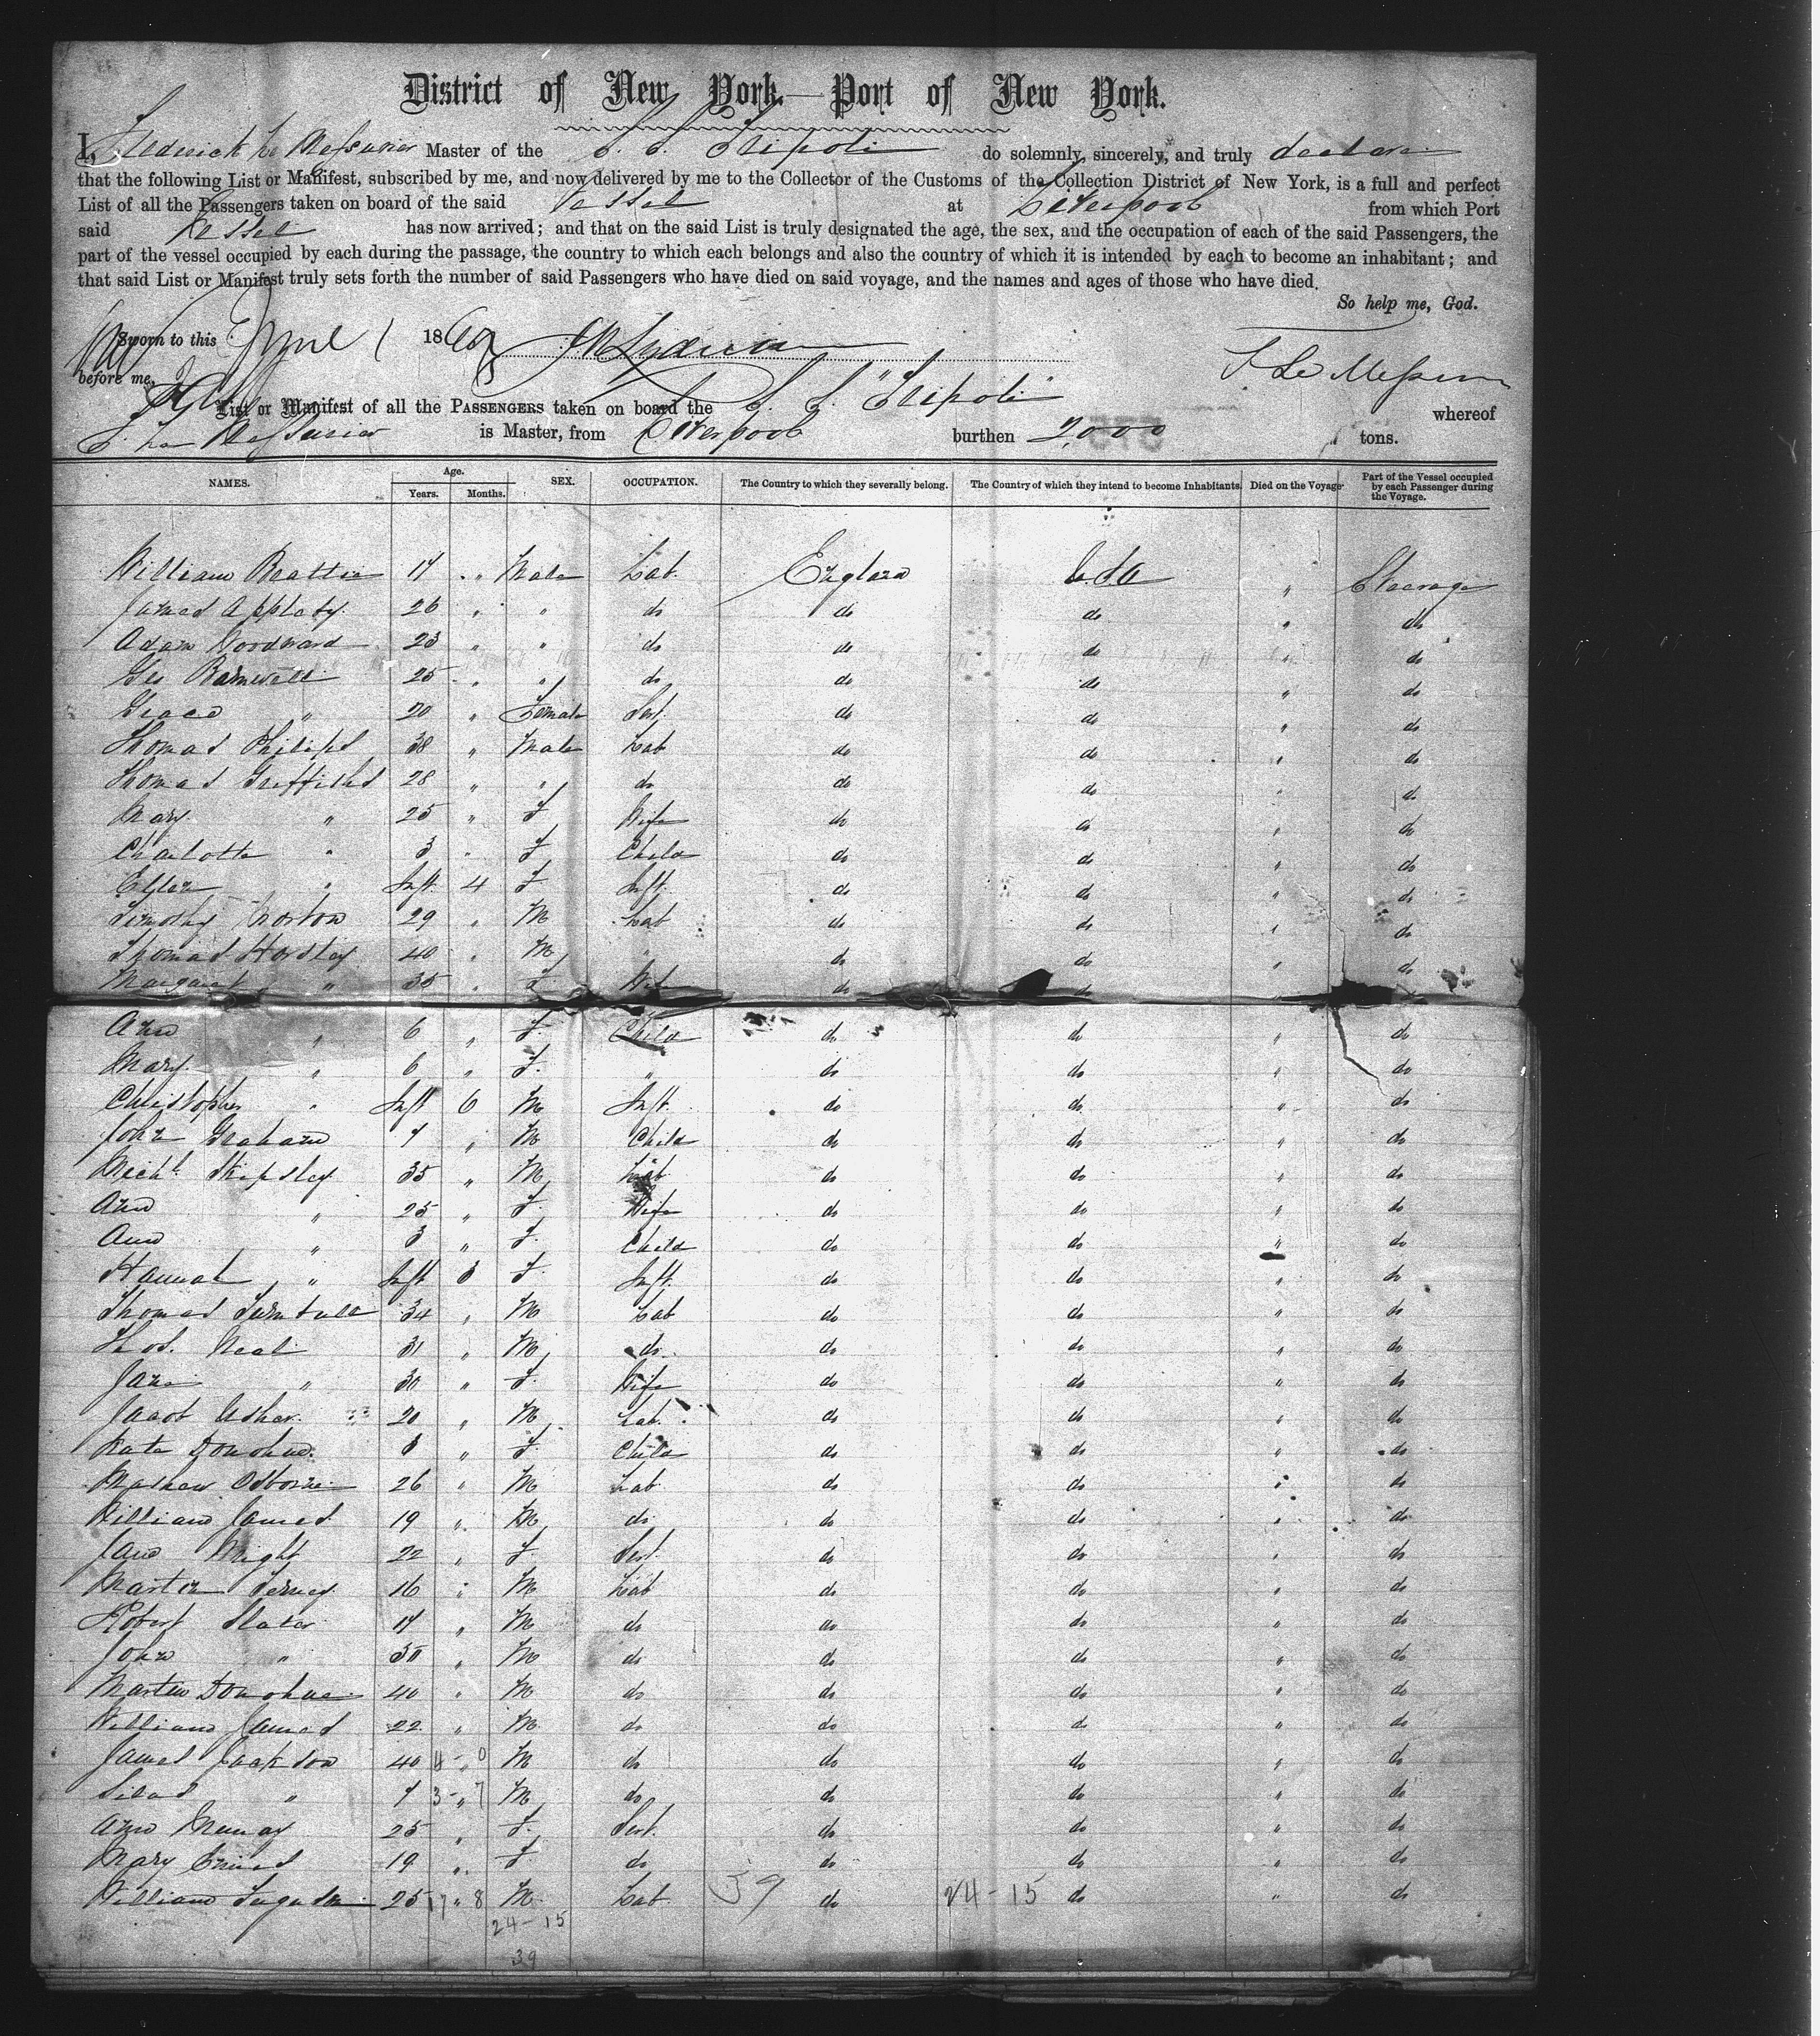 District of New York.—Port of New York.
I, Frederick Le Messurier Master of the S. S. Tripoli do solemnly, sincerely, and truly declare
that the following List or Manifest, subscribed by me, and now delivered by me to the Collector of the Customs of the Collection District of New York, is a full and perfect
List of all the Passengers taken on board of the said Vessel at Liverpool from which Port
said Vessel has now arrived; and that on the said List is truly designated the age, the sex, and the occupation of each of the said Passengers, the
part of the vessel occupied by each during the passage, the country to which each belongs and also the country of which it is intended by each to become an inhabitant; and
that said List or Manifest truly sets forth the number of said Passengers who have died on said voyage, and the names and ages of those who have died.
So help me, God.
Sworn to this June 1 186
before me, F Le Messurier
List or Manifest of all the PASSENGERS taken on board the S. S. "Tripoli" whereof
F. Le Messurier is Master, from Liverpool burthen 2,000 tons.
NAMES. Age. Years. Months. SEX. OCCUPATION. The Country to which they severally belong. The Country of which they intend to become Inhabitants. Died on the Voyage Part of the Vessel occupied by each Passenger during the Voyage.
William Beattie 17 " Male Lab. England U.S.A " Steerage
James Appleby 26 " " do do do " do
Adam Woodward 23 " " do do do " do
Geo Barnwell 25 " " do do do " do
Grace " 20 " Female Sert. do do " do
Thomas Philips 38 " Male Lab do do " do
Thomas Griffiths 28 " " do do do " do
Mary " 25 " F Wife do do " do
Charlotte " 3 " F Child do do " do
Ellen " Inft. 4 F Inft. do do " do
Timothy Norton 29 " M Lab do do " do
Thomas Horsley 40 " M " do do " do
Margaret " 35 " F Wife do do " do
Ann " 6 " F. Child do do " do
Mary " 6 " F. " do do " do
Christopher " Inft 6 M Inft. do do " do
John Graham 7 " M Child do do " do
Michl. Shipsley 35 " M Lab do do " do
Ann " 25 " F. Wife do do " do
Ann " 3 " F. Child do do " do
Hannah " Inft 3 F. Inft. do do " do
Thomas Turnbull 34 " M Lab do do " do
Thos. Neal 31 " M do do do " do
Jane " 30 " F. Wife do do " do
Jacob Usher 20 " M Lab. do do " do
Kate Donohue 8 " F. Child do do " do
Mathew Osborne 26 " M Lab. do do " do
William James 19 " M do do do " do
Jane Wright 22 " F. Sert. do do " do
Martin Ferney 16 " M Lab do do " do
Robert Slater 17 " M do do do " do
John " 30 " M do do do " do
Martin Donohue 40 " M do do do " do
William James 22 " M do do do " do
James Jackson 40 4-0 M do do do " do
Silas " 7 3-7 M do do do " do
Ann Murray 25 " F. Sert. do do " do
Mary 19 " F do do do " do
William 25 17 " 8 M. Lab. 39 do 24-15 do " do
24-15
39